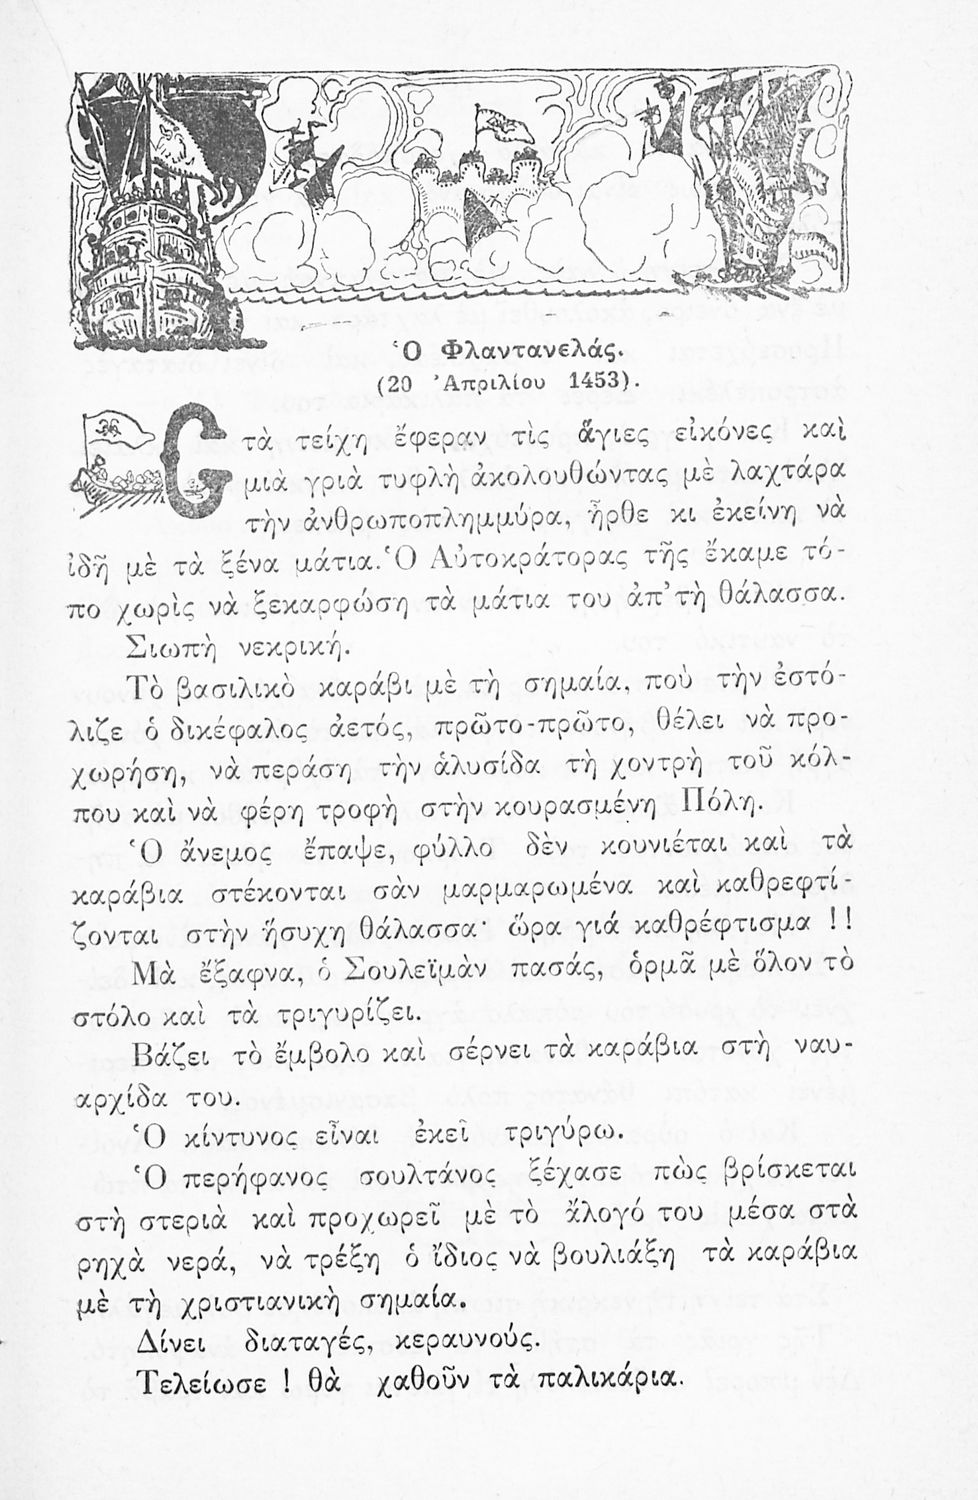 Ὁ Φλαντανελάς.
(20 Ἀπριλίου 1453).
Στὰ τείχη ἔφεραν τὶς ἅγιες εἰκόνες καὶ
μιὰ γριὰ τυφλὴ ἀκολουθώντας μὲ λαχτάρα
τὴν ἀνθρωποπλημμύρα, ἦρθε κι ἐκείνη νὰ
ἰδῆ μὲ τὰ ξένα μάτια. Ὁ Αὐτοκράτορας τῆς ἔκαμε τό-
πο χωρὶς νὰ ξεκαρφώση τὰ μάτια του ἀπ' τὴ θάλασσα.
Σιωπὴ νεκρική.
Τὸ βασιλικὸ καράβι μὲ τὴ σημαία, ποὺ τὴν ἐστό-
λιζε ὁ δικέφαλος ἀετός, πρῶτο-πρῶτο, θέλει νὰ προ-
χωρήση, νὰ περάση τὴν ἁλυσίδα τὴ χοντρὴ τοῦ κόλ-
που καὶ νὰ φέρη τροφὴ στὴν κουρασμένη Πόλη.
Ὁ ἄνεμος ἔπαψε, φύλλο δὲν κουνιέται καὶ τὰ
καράβια στέκονται σὰν μαρμαρωμένα καὶ καθρεφτί-
ζονται στὴν ἥσυχη θάλασσα· ὥρα γιά καθρέφτισμα !!
Μὰ ἔξαφνα, ὁ Σουλεϊμὰν πασάς, ὁρμᾶ μὲ ὅλον τὸ
στόλο καὶ τὰ τριγυρίζει.
Βάζει τὸ ἔμβολο καὶ σέρνει τὰ καράβια στὴ ναυ-
αρχίδα του.
Ὁ κίντυνος εἶναι ἐκεῖ τριγύρω.
Ὁ περήφανος σουλτάνος ξέχασε πὼς βρίσκεται
στὴ στεριὰ καὶ προχωρεῖ μὲ τὸ ἄλογό του μέσα στὰ
ρηχὰ νερά, νὰ τρέξη ὁ ἴδιος νὰ βουλιάξη τὰ καράβια
μὲ τὴ χριστιανικὴ σημαία.
Δίνει διαταγές, κεραυνούς.
Τελείωσε ! θὰ χαθοῦν τὰ παλικάρια.